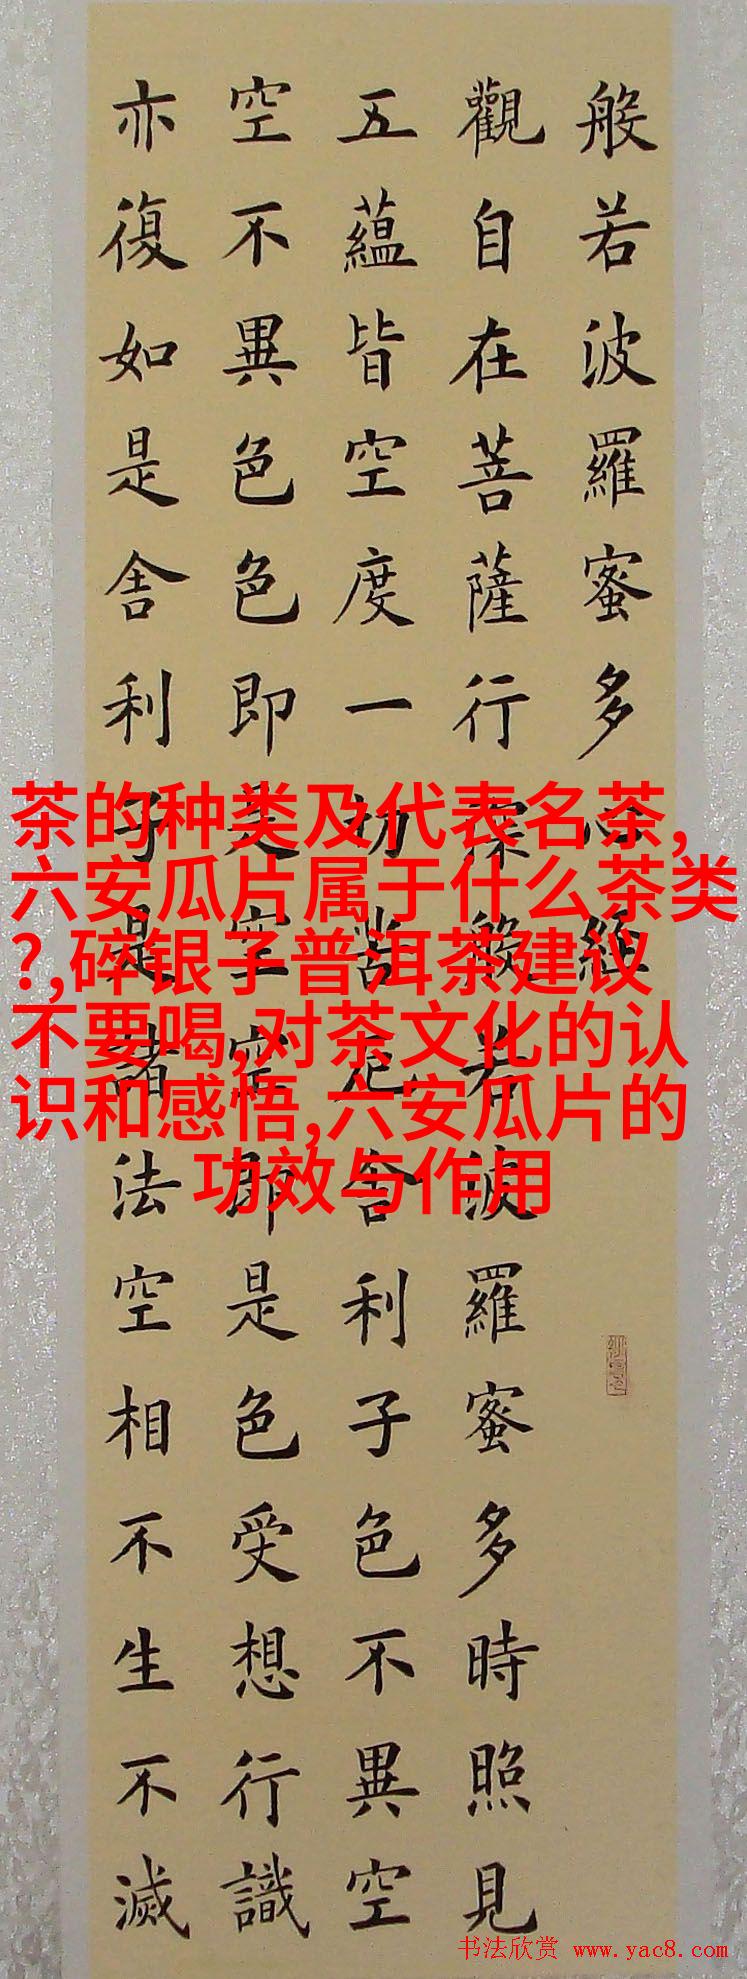 般若波羅蜜多心經
觀自在菩薩行深般若波羅蜜多時照見
五蘊皆空度一切苦厄舍利子色不異空
空不異色色即是空空即是色受想行識
亦復如是舍利子是諸法空相不生不滅
茶的种类及代表名茶,
六安瓜片属于什么茶类
?,碎银子普洱茶建议
不要喝,对茶文化的认
识和感悟,六安瓜片的
功效与作用
书法欣赏 www.yac8.com